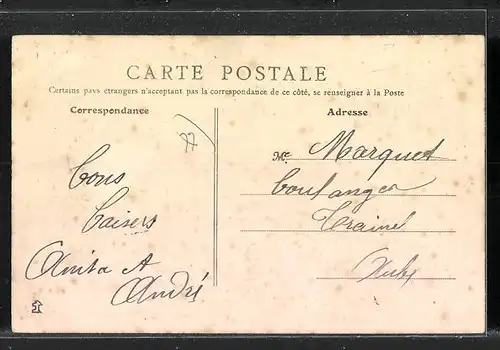 CARTE POSTALE
Certains pays étrangers n'acceptant pas la correspondance de ce côté, se renseigner à la Poste
Correspondance
Adresse
77
Mr Marquet
boulanger
Trainel
Aube
Bons
baisers
Anita et
André